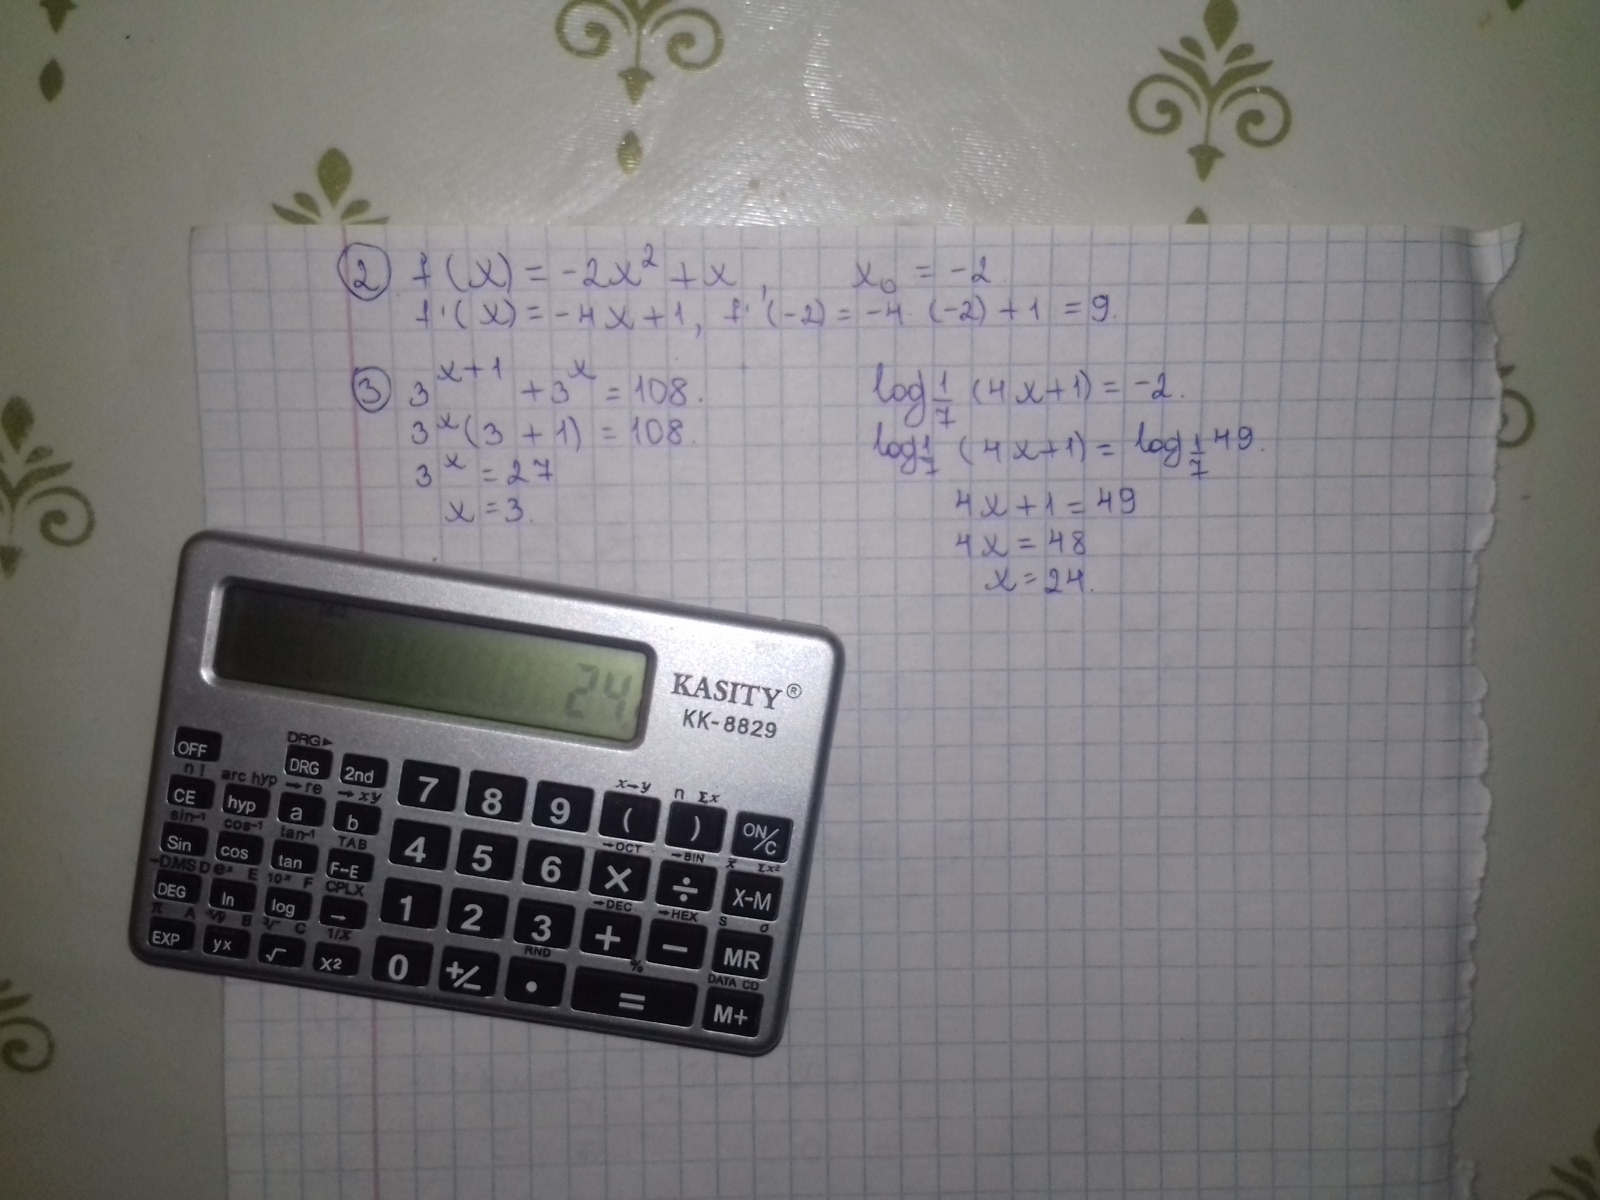 ② f(x) = -2x² + x , x₀ = -2
f'(x) = -4x+1, f'(-2) = -4·(-2)+1 = 9.
③ 3^(x+1) + 3^x = 108.
3^x(3+1) = 108.
3^x = 27
x = 3.
log_(1/7) (4x+1) = -2.
log_(1/7) (4x+1) = log_(1/7) 49.
4x+1 = 49
4x = 48
x = 24.
24.
KASITY®
KK-8829
DRG▸
OFF DRG 2nd 7 8 9 ( ) ON/C
n! arc hyp →re →xy x→y n Σx
CE hyp a b 4 5 6 × ÷ X-M
sin⁻¹ cos⁻¹ tan⁻¹ TAB →OCT →BIN x̄ Σx²
Sin cos tan F↔E 1 2 3 + − MR
→DMS D eˣ E 10ˣ F CPLX →DEC →HEX S σ
DEG ln log → 0 +/− . = M+
π A ˣ√y B ³√ C 1/x RND % DATA CD
EXP yx √ X²